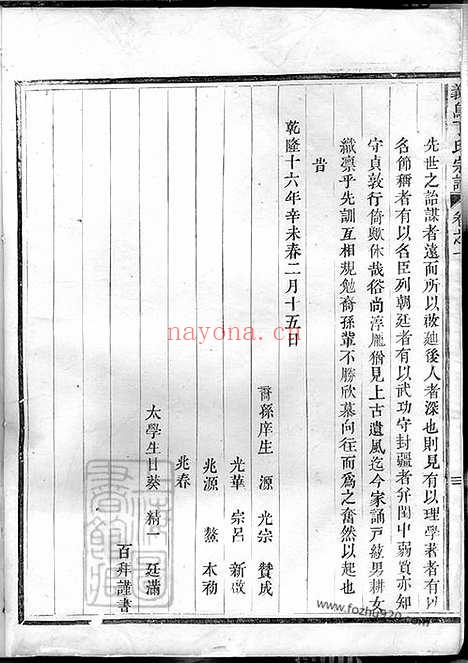 義烏丁氏宗譜 卷之一 三
先世之詒謀者遠而所以啟廸後人者深也則見有以理學著者有以
名節稱者有以名臣列朝廷者有以武功守封疆者并閨中弱質亦知
守貞敦行猗歟休哉俗尚淳龐猶見上古遺風迄今家誦戸絃男耕女
織凛乎先訓互相規勉裔孫輩不勝欣慕向往而爲之奮然以起也
旹
乾隆十六年辛未春二月十五日
裔孫庠生 源 光宗 贊成
光華 宗呂 新
兆源 鰲 本初
兆春
太學生日葵 精一 廷滿
百拜謹書
nayona.cn
www.fozhu920.com